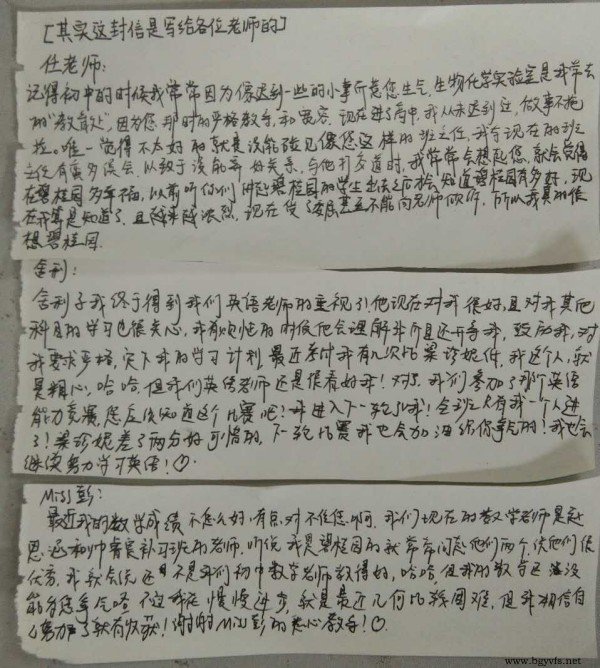 [其实这封信是写给各位老师的]
任老师:
记得初中的时候我常常因为像迟到一些的小事所惹您生气,生物化学实验室是我常去
的“教育处”,因为您那时的严格教导和宽容,现在进了高中,我从未迟到过,做事不拖
拉。唯一觉得不太好的就是没能碰见像您这样的班主任,我与现在的班
主任有蛮多误会,以致于没能弄好关系,与他打交道时,我常常会想起您,就会觉得
在碧桂园多幸福,以前听你们说碧桂园的学生出去之后才会知道碧桂园有多好,现
在我算是知道了,且越来越浓烈,现在受了委屈甚至不能向老师倾诉,所以我真的很
想碧桂园。
舍利:
舍利子我终于得到我们英语老师的重视了!他现在对我很好,且对我其他
科目的学习也很关心,我有惰性的时候他会理解并且还开导我,鼓励我,对
我要求严格,定下我的学习计划,最近考试我有几次比梁诊妮低,我这个人,就
是粗心,哈哈,但我们英语老师还是很看好我!对了,我们参加了那个英语
能力竞赛,您应该知道这个比赛吧!我进入下一轮了哦!全班只有我一个人进
了!梁诊妮差了两分好可惜的,下一轮比赛我也会加油给你争光的!我也会
继续努力学习英语!♡.
Miss彭:
最近我的数学成绩不怎么好,有点对不住您啊,我们现在的数学老师是赵
思,还和帅 补习班的老师,听说我是碧桂园的就常常问起他们两个,说他们很
优秀,我就会说还不是我们初中数学老师教得好,哈哈,但我的数学还没
能为您争气哈 不过我在慢慢进步,就是最近几何比较困难,但我相信自
己努力了就有收获!谢谢Miss彭的悉心教导!♡.
www.bgyvfs.net